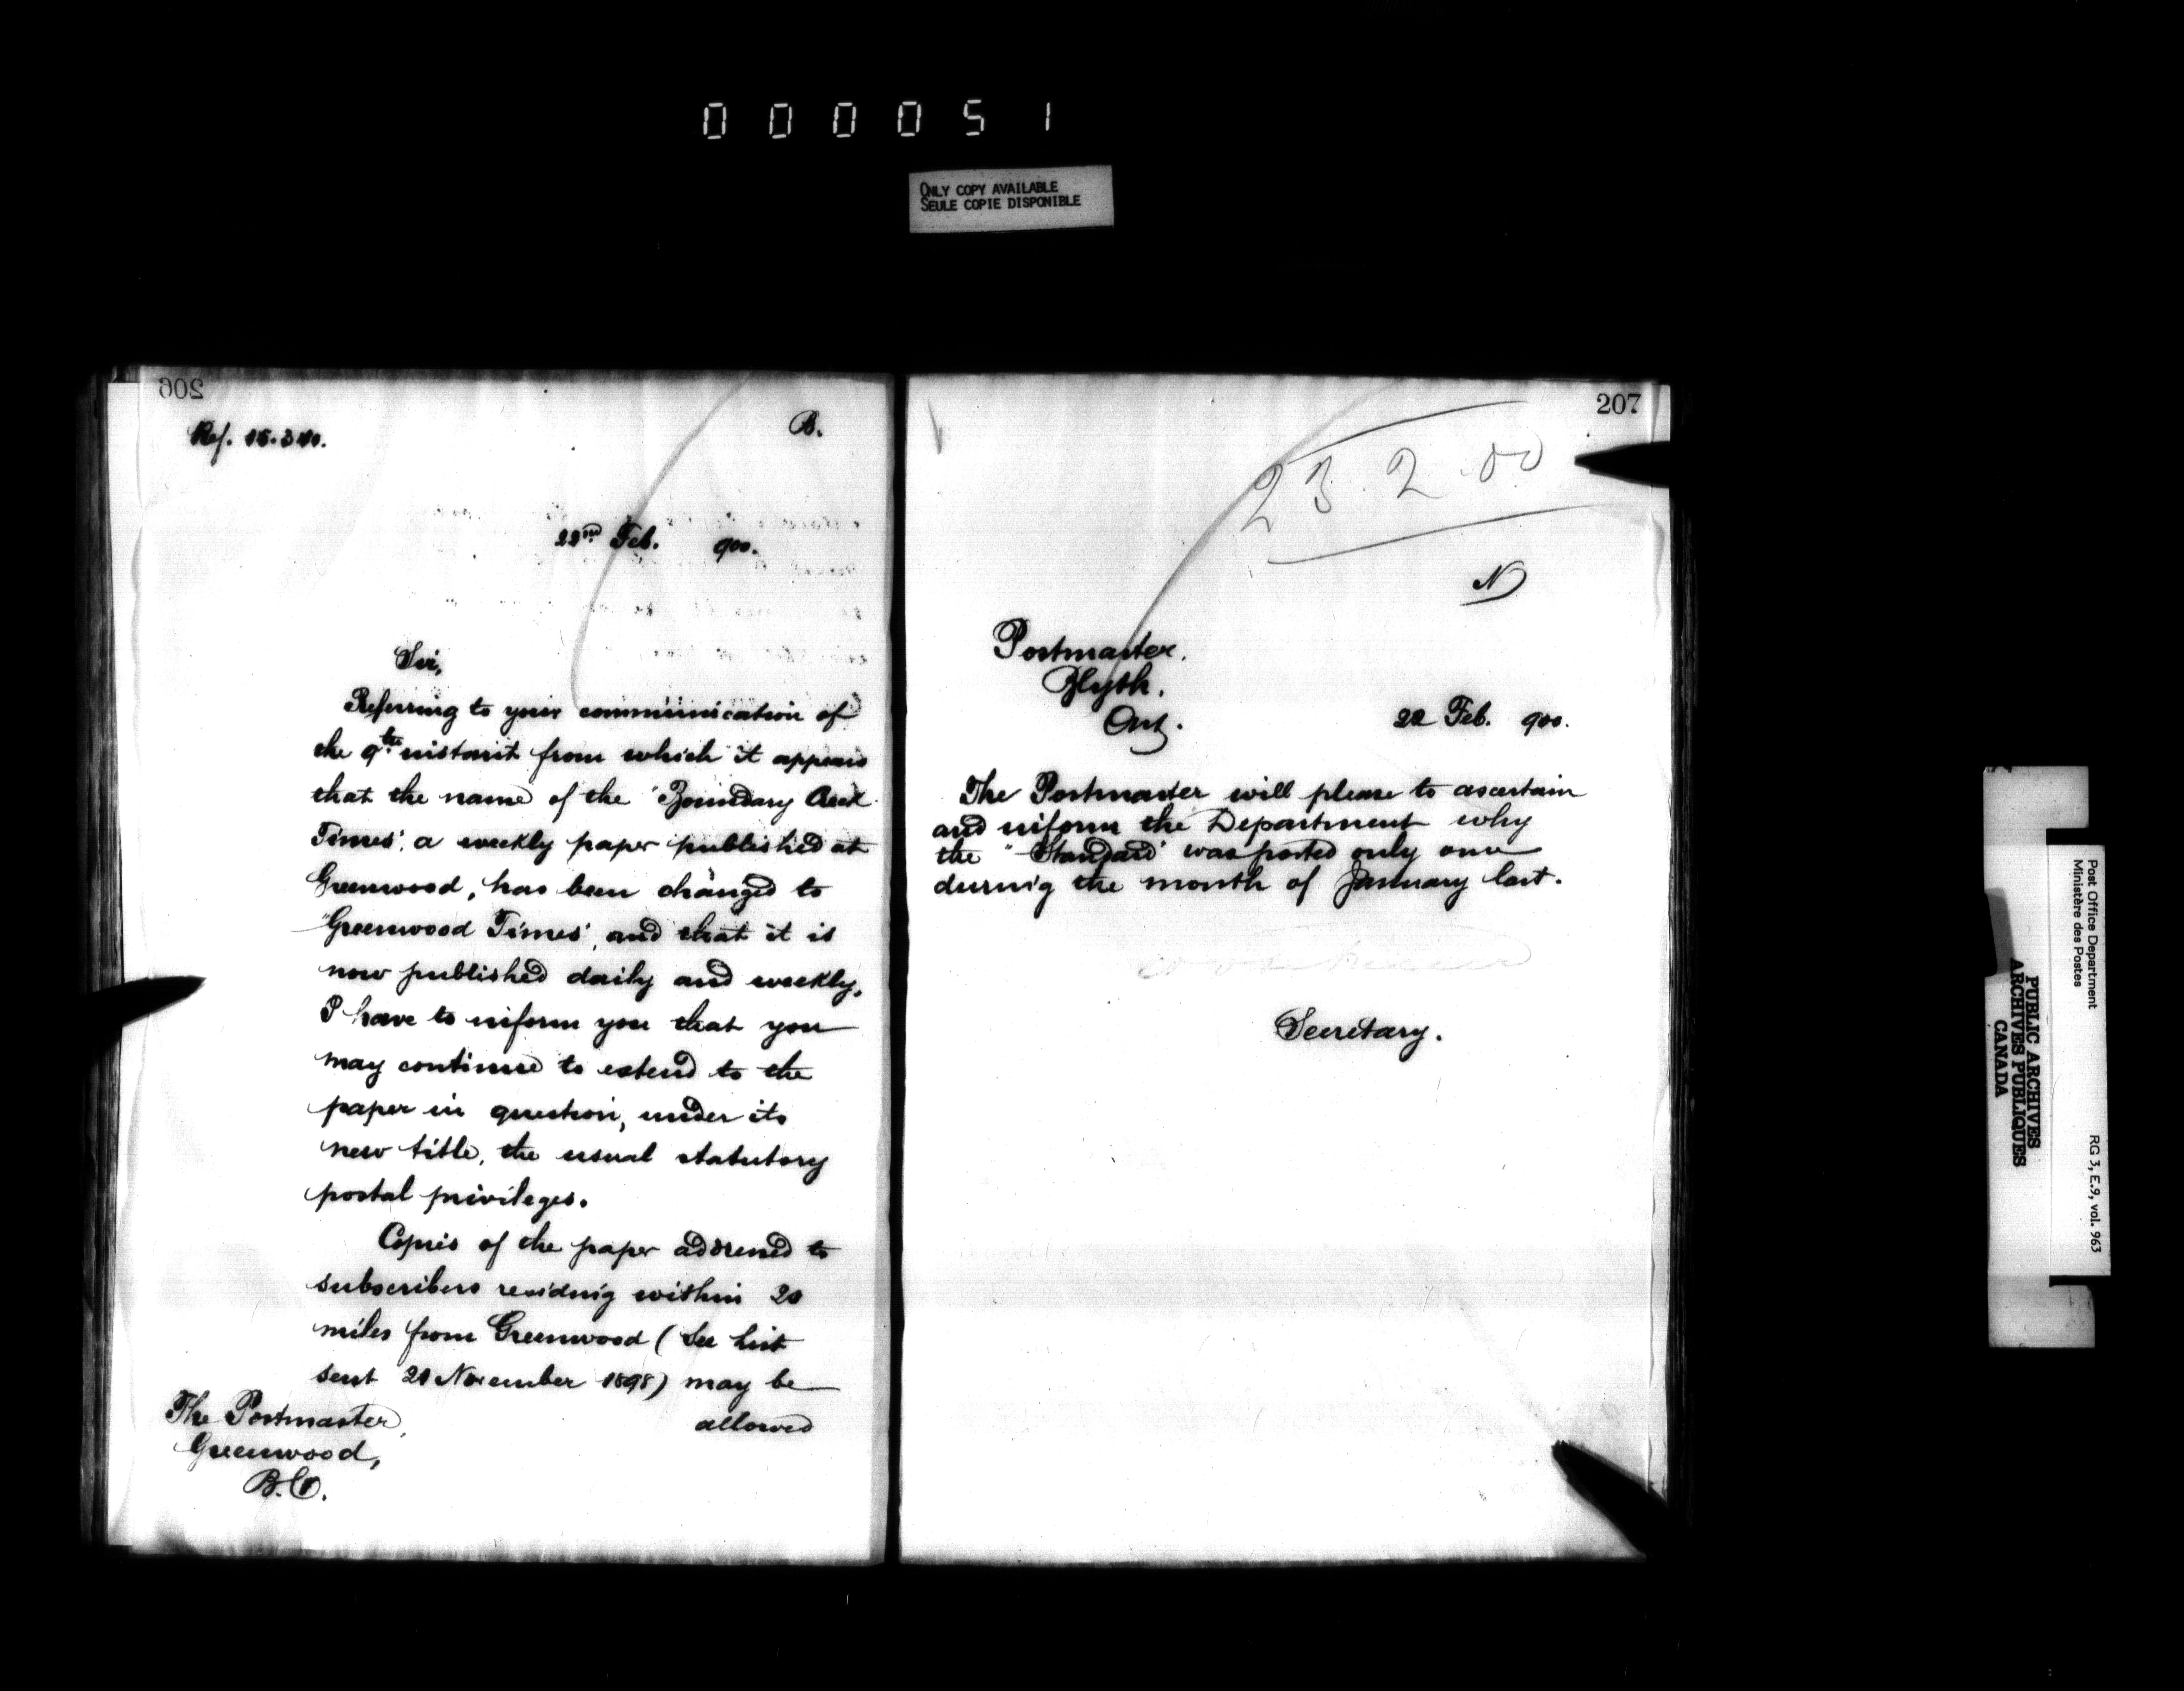 000051
ONLY COPY AVAILABLE
SEULE COPIE DISPONIBLE
206
Ref. 15.340.
B.
22nd Feb. 900.
Sir,
Referring to your communication of
the 9th instant from which it appears
that the name of the "Boundary Creek
Times", a weekly paper published at
Greenwood, has been changed to
"Greenwood Times", and that it is
now published daily and weekly,
I have to inform you that you
may continue to extend to the
paper in question, under its
new title, the usual statutory
postal privileges.
Copies of the paper addressed to
subscribers residing within 20
miles from Greenwood (See List
sent 21 November 1898) may be
allowed
The Postmaster,
Greenwood,
B.C.
207
23.2.00
N
Postmaster.
Blyth.
Ont.
22 Feb. 900.
The Postmaster will please to ascertain
and inform the Department why
the "Standard" was posted only once
during the month of January last.
Secretary.
Post Office Department
Ministère des Postes
RG 3, E.9, vol. 963
PUBLIC ARCHIVES
ARCHIVES PUBLIQUES
CANADA